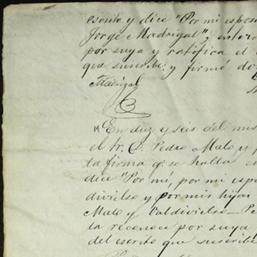 escrito y dice "Por mi espos
Jorge Madrigal"; enter
por suya y ratifica el
que suscribe; y firmó do
Madrigal
En diez y seis del mis
el Sr. C. Pedro Malo y
la firma q. se halla
dice "Por mí, por mi esp
divielso y por mis hijos
Malo y Valdivielso Pe
la reconoce por suya
del escrito que suscribe